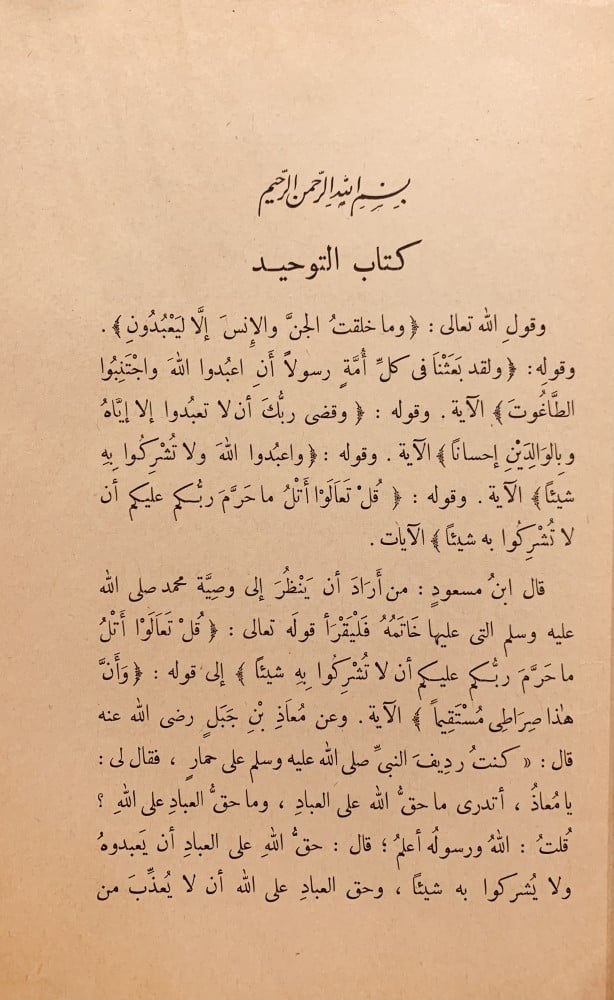 بِسْمِ اللهِ الرَّحمنِ الرَّحيمِ
كتاب التوحيد
وقولِ الله تعالى : ﴿ وما خلقتُ الجنَّ والإنسَ إلَّا لِيَعْبُدُونِ ﴾ .
وقولِه : ﴿ ولقد بَعَثْنَا فى كلِّ أُمَّةٍ رسولاً أَنِ اعبُدوا اللهَ واجْتَنِبُوا
الطَّاغُوتَ ﴾ الآية . وقوله : ﴿ وقضى ربُّكَ أن لا تعبُدوا إلا إيَّاهُ
وبِالوَالِدَيْنِ إحساناً ﴾ الآية . وقوله : ﴿ واعبُدوا اللهَ ولا تُشْرِكُوا بِهِ
شيئاً ﴾ الآية . وقوله : ﴿ قُلْ تَعَالَوْا أَتْلُ ما حَرَّمَ ربُّكم عليكم أن
لا تُشْرِكُوا به شيئاً ﴾ الآيات .
قال ابنُ مسعودٍ : من أَرَادَ أن يَنْظُرَ إلى وصِيَّة محمد صلى الله
عليه وسلم التى عليها خَاتَمُهُ فَلْيَقْرَأ قولَه تعالى : ﴿ قُلْ تَعَالَوْا أَتْلُ
ما حَرَّمَ ربُّكم عليكم أن لا تُشْرِكُوا بِهِ شيئاً ﴾ إلى قوله : ﴿ وَأَنَّ
هٰذا صِرَاطِى مُسْتَقِيماً ﴾ الآية . وعن مُعَاذِ بْنِ جَبَلٍ رضى الله عنه
قال : « كنتُ ردِيفَ النبىِّ صلى الله عليه وسلم على حمارٍ ، فقال لى :
يا مُعاذُ ، أتدرى ما حقُّ الله على العبادِ ، وما حقُّ العبادِ على اللهِ ؟
قُلتُ : اللهُ ورسولُه أعلمُ ؛ قال : حقُّ اللهِ على العبادِ أن يَعبدوهُ
ولا يُشركوا به شيئاً ، وحق العبادِ على الله أن لا يُعذِّبَ من